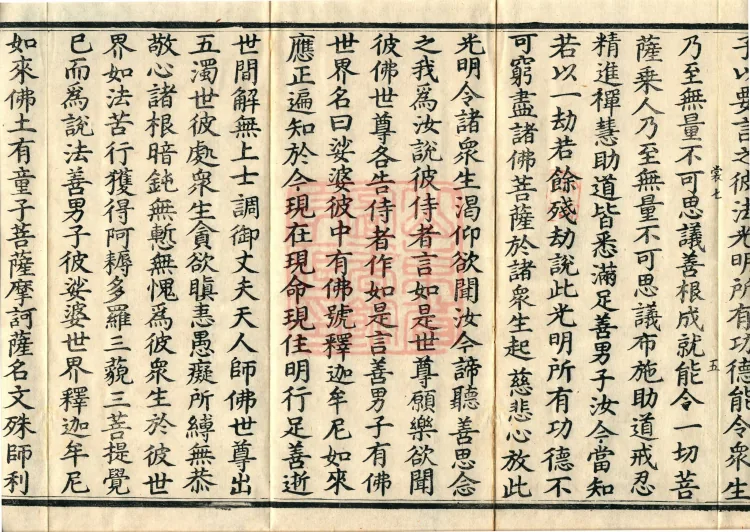 子以要言之彼法光明所有功德能令衆生
裳七
五
乃至無量不可思議善根成就能令一切菩
薩乗人乃至無量不可思議布施助道戒忍
精進禪慧助道皆悉滿足善男子汝今當知
若以一劫若餘殘劫說此光明所有功德不
可窮盡諸佛菩薩於諸衆生起慈悲心放此
光明令諸衆生渴仰欲聞汝今諦聽善思念
之我爲汝說彼侍者言如是世尊願樂欲聞
彼佛世尊各告侍者作如是言善男子有佛
世界名曰娑婆彼中有佛號釋迦牟尼如來
應正遍知於今現在現命現住明行足善逝
世間解無上士調御丈夫天人師佛世尊出
五濁世彼處衆生貪欲瞋恚愚癡所縛無恭
敬心諸根暗鈍無慙無愧爲彼衆生於彼世
界如法苦行獲得阿耨多羅三藐三菩提覺
已而爲說法善男子彼娑婆世界釋迦牟尼
如來佛土有童子菩薩摩訶薩名文殊師利